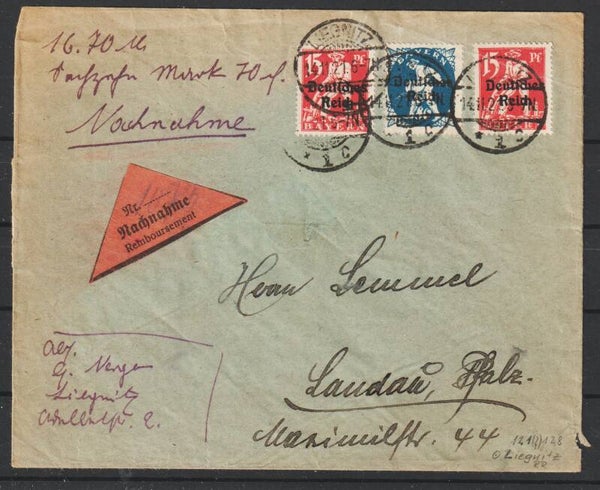 16.70 M
Sechzehn Mark 70 Pf.
Nachnahme
LIEGNITZ
15 Pf
Deutsches
Reich
BAYERN
BAYERN
Deutsches
Reich
15 Pf
Deutsches
Reich
BAYERN
* 1 C
1 C
* 1 C
Nr.
Nachnahme
Remboursement
Herrn Lemmel
Landau, Pfalz.
Maximilstr. 44
Abs.
G.
Liegnitz
Liegnitz